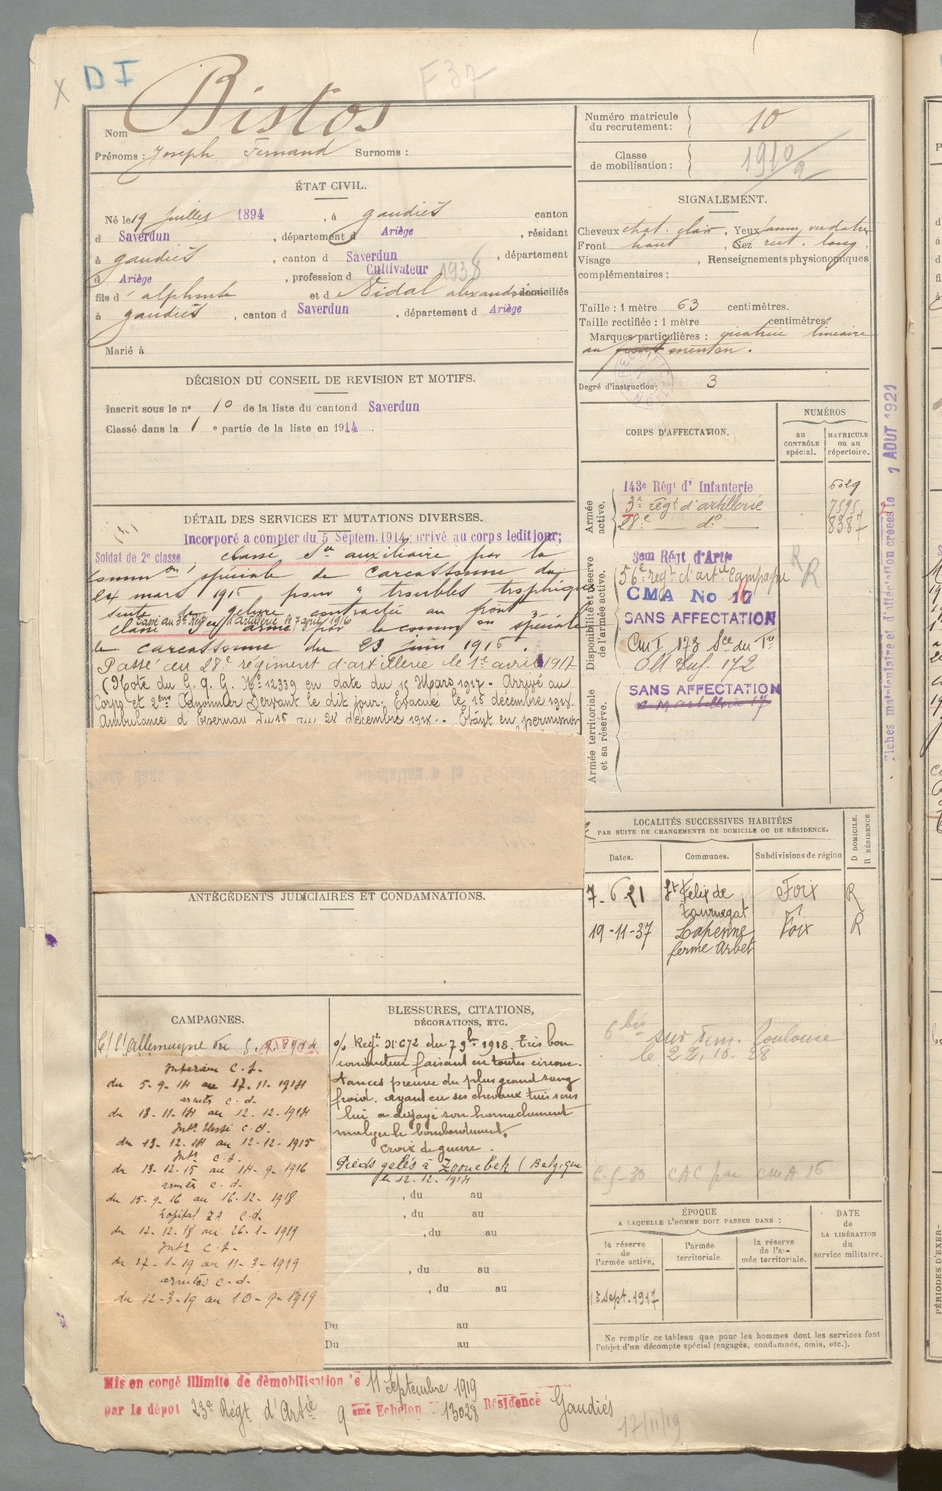 D I
F 37
Nom Bistos
Prénoms : Joseph Fernand Surnoms :
Numéro matricule du recrutement : 10
Classe de mobilisation : 1910/9
ÉTAT CIVIL.
Né le 19 juillet 1894, à gaudiès canton
d Saverdun, département d Ariège, résidant
à gaudiès, canton d Saverdun, département
d Ariège, profession d Cultivateur 1938
fils d' alphonse et d Vidal domiciliés
à gaudiès, canton d Saverdun, département d Ariège
Marié à
SIGNALEMENT.
Cheveux chat. clair, Yeux jaune verdatre
Front haut, Nez rect. long.
Visage , Renseignements physionomiques
complémentaires :
Taille : 1 mètre 63 centimètres.
Taille rectifiée : 1 mètre centimètres.
Marques particulières : cicatrice linéaire
au front menton.
Degré d'instruction : 3
DÉCISION DU CONSEIL DE REVISION ET MOTIFS.
Inscrit sous le n° 10 de la liste du canton d Saverdun
Classé dans la 1 e partie de la liste en 1914
DÉTAIL DES SERVICES ET MUTATIONS DIVERSES.
Incorporé a compter du 5 Septem. 1914, arrivé au corps ledit jour;
Soldat de 2e classe classé Sce auxiliaire par la
comm on spéciale de Carcassonne du
24 mars 1916 pour " troubles trophiques
suite de gelure contractée au front "
Passé au 3e Rég. d'Artillerie le 7 avril 1916
classé Sce armé par la comm on spéciale
de Carcassonne du 23 juin 1916.
Passé au 28e régiment d'artillerie le 1er avril 1917
(Note du G. Q. G. No 12339 en date du 15 Mars 1917. Arrivé au
Corps et 2ème Canonnier Servant le dit jour. Évacué le 15 décembre 1918.
Ambulance d'Epernay du 15 au 28 décembre 1918. Étant en permission
CORPS D'AFFECTATION.
NUMÉROS
AU CONTRÔLE spécial.
MATRICULE ou au répertoire.
Armée active.
143e Régt d'Infanterie 6029
3e régt d'artillerie 7595
28e do 8387
Disponibilité et réserve de l'armée active.
3eme Régt d'Artie
56e régt d'artie Campagne R
CMA No 16
SANS AFFECTATION
Cm I 173 Sce du Tn
172
Armée territoriale et sa réserve.
SANS AFFECTATION
C M Artillerie 17
Fiches matriculaire et d'affectation créées le 1 AOUT 1921
LOCALITÉS SUCCESSIVES HABITÉES
PAR SUITE DE CHANGEMENTS DE DOMICILE OU DE RÉSIDENCE.
Dates. Communes. Subdivisions de région D DOMICILE. R RÉSIDENCE.
7-6-21 St Felix de Tournegat Foix R
19-11-37 Lapenne ferme Arbet Foix R
6 bis sur dem. Toulouse
le 22.10.38
6-5-30 CAC par CMA 16
ANTÉCÉDENTS JUDICIAIRES ET CONDAMNATIONS.
CAMPAGNES.
C/ l'Allemagne du 5.9.1914
Intérieur C. S.
du 5-9-14 au 17-11-1914
armées C. d.
du 18-11-14 au 12-12-1914
Intr blessé C. d.
du 13-12-14 au 12-12-1915
Intr C. S.
du 13-12-15 au 14-9-1916
armées C. d.
du 15-9-16 au 16-12-1918
hopital ZA C. d.
du 17-12-18 au 26-1-1919
Intr C. S.
du 27-1-19 au 11-3-1919
armées C. d.
du 12-3-19 au 10-9-1919
BLESSURES, CITATIONS,
DÉCORATIONS, ETC.
O/ Regt N° 672 du 7 9bre 1918. Très bon
conducteur faisant en toutes circons-
tances preuve du plus grand sang
froid. Ayant eu ses chevaux tués sous
lui a dégagé son harnachement
malgré le bombardement.
Croix de guerre.
Pieds gelés à Zonnebek (Belgique
le 12-12-1914
, du au
, du au
, du au
, du au
, du au
Du au
Du au
ÉPOQUE
A LAQUELLE L'HOMME DOIT PASSER DANS :
la réserve de l'armée active.
l'armée territoriale.
la réserve de l'armée territoriale.
DATE de LA LIBÉRATION du service militaire.
1er Sept. 1917
Ne remplir ce tableau que pour les hommes dont les services font
l'objet d'un décompte spécial (engagés, condamnés, omis, etc.).
Mis en congé illimité de démobilisation le 11 Septembre 1919
par le dépot 23e Régt d'Artie 9 ème Echelon No 13028 Résidence Gaudiés
17/11/19
PÉRIODES D'EXER-